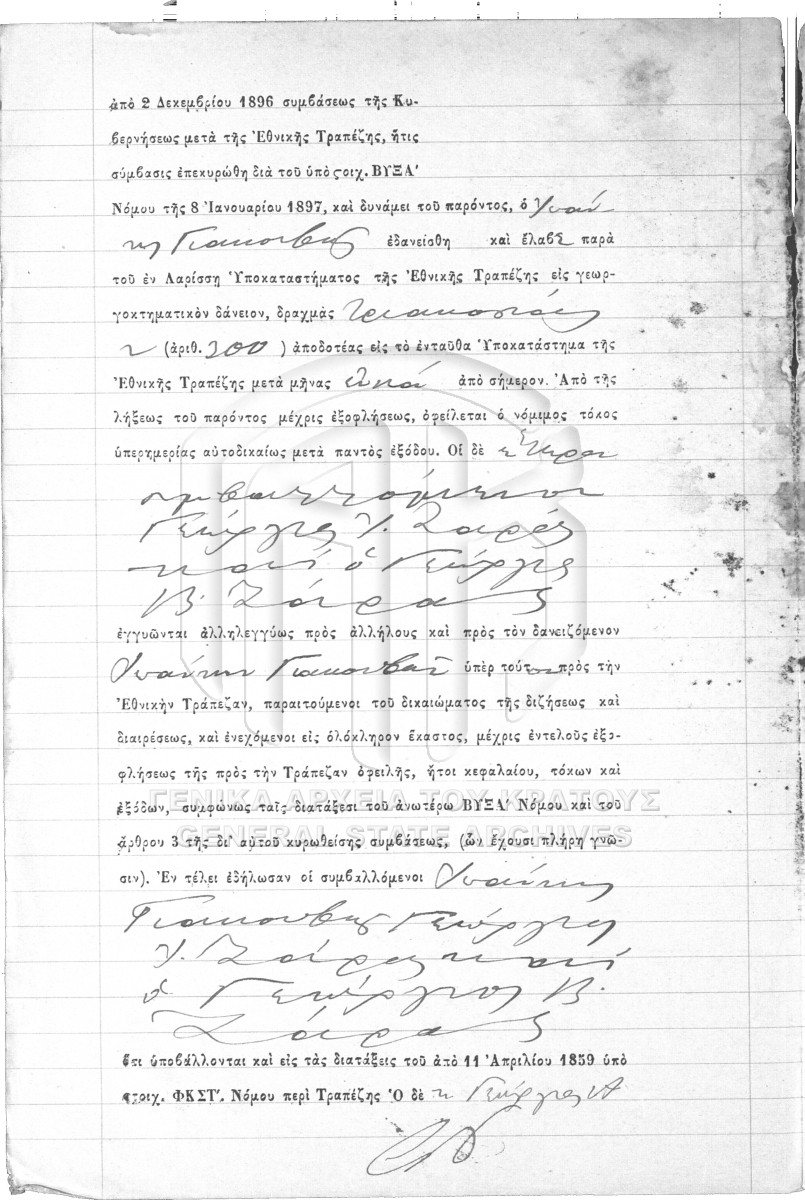 ἀπὸ 2 Δεκεμβρίου 1896 συμβάσεως τῆς Κυ-
βερνήσεως μετὰ τῆς Ἐθνικῆς Τραπέζης, ἥτις
σύμβασις ἐπεκυρώθη διὰ τοῦ ὑπὸ στοιχ. ΒΥΞΑ'
Νόμου τῆς 8 Ἰανουαρίου 1897, καὶ δυνάμει τοῦ παρόντος, ὁ Ἰωάν
νης Γιακουβῆς ἐδανείσθη καὶ ἔλαβε παρὰ
τοῦ ἐν Λαρίσσῃ Ὑποκαταστήματος τῆς Ἐθνικῆς Τραπέζης εἰς γεωρ-
γοκτηματικὸν δάνειον, δραχμὰς τριακοσίας
(ἀριθ. 300 ) ἀποδοτέας εἰς τὸ ἐνταῦθα Ὑποκατάστημα τῆς
Ἐθνικῆς Τραπέζης μετὰ μῆνας ἐννέα ἀπὸ σήμερον. Ἀπὸ τῆς
λήξεως τοῦ παρόντος μέχρις ἐξοφλήσεως, ὀφείλεται ὁ νόμιμος τόκος
ὑπερημερίας αὐτοδικαίως μετὰ παντὸς ἐξόδου. Οἱ δὲ ἕτεροι
συμβαλλόμενοι
Γεώργιος Ι. Ζάρας
καὶ ὁ Γεώργιος
Β. Ζάρας
ἐγγυῶνται ἀλληλεγγύως πρὸς ἀλλήλους καὶ πρὸς τὸν δανειζόμενον
Ἰωάννην Γιακουβῆν ὑπὲρ τούτου πρὸς τὴν
Ἐθνικὴν Τράπεζαν, παραιτούμενοι τοῦ δικαιώματος τῆς διζήσεως καὶ
διαιρέσεως, καὶ ἐνεχόμενοι εἰς ὁλόκληρον ἕκαστος, μέχρις ἐντελοῦς ἐξο-
φλήσεως τῆς πρὸς τὴν Τράπεζαν ὀφειλῆς, ἤτοι κεφαλαίου, τόκων καὶ
ΓΕΝΙΚΑ ΑΡΧΕΙΑ ΤΟΥ ΚΡΑΤΟΥΣ
ἐξόδων, συμφώνως ταῖς διατάξεσι τοῦ ἀνωτέρω ΒΥΞΑ' Νόμου καὶ τοῦ
GENERAL STATE ARCHIVES
ἄρθρου 3 τῆς δι' αὐτοῦ κυρωθείσης συμβάσεως, (ὧν ἔχουσι πλήρη γνῶ-
σιν). Ἐν τέλει ἐδήλωσαν οἱ συμβαλλόμενοι Ἰωάννης
Γιακουβῆς Γεώργιος
Ι. Ζάρας καὶ
ὁ Γεώργιος Β.
Ζάρας
ὅτι ὑποβάλλονται καὶ εἰς τὰς διατάξεις τοῦ ἀπὸ 11 Ἀπριλίου 1859 ὑπὸ
στοιχ. ΦΚΣΤ'. Νόμου περὶ Τραπέζης Ὁ δὲ Γεώργιος Α